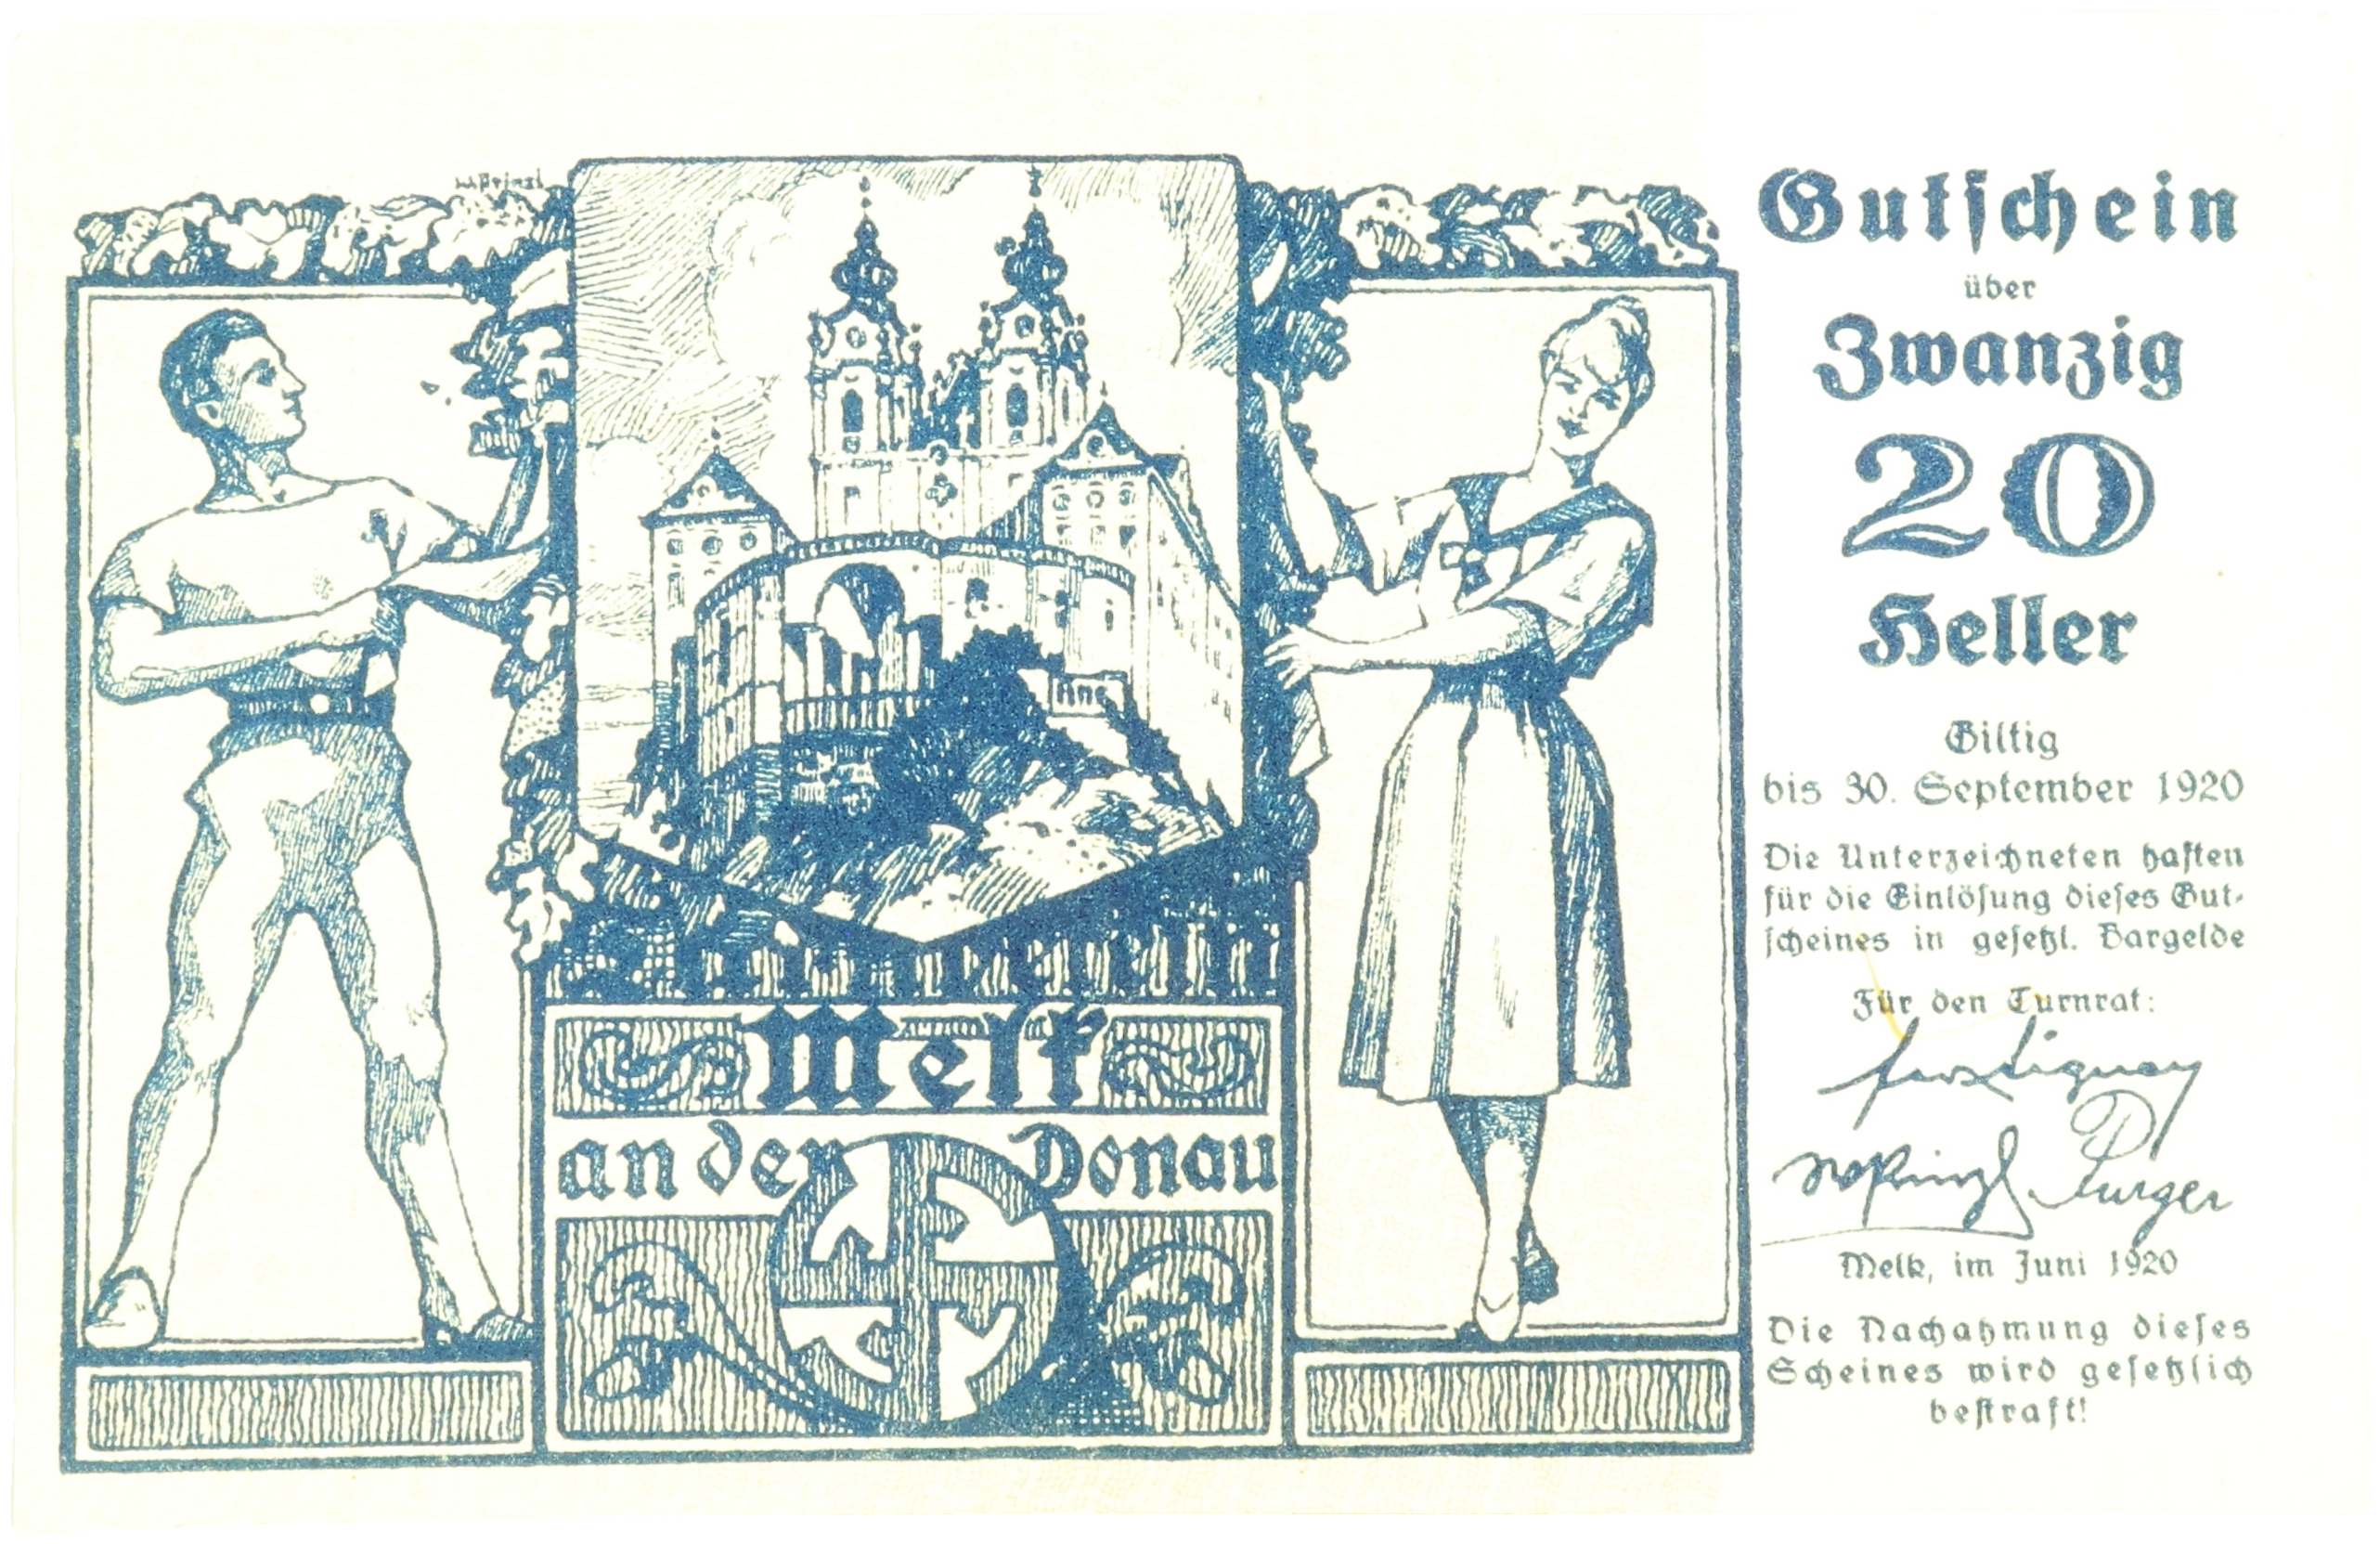 W. Prinzl
Turnverein
Melk
an der Donau
Gutschein
über
Zwanzig
20
Heller
Giltig
bis 30. September 1920
Die Unterzeichneten haften
für die Einlösung dieses Gut-
scheines in gesetzl. Bargelde
Für den Turnrat:
WPrinzl Purger
Melk, im Juni 1920
Die Nachahmung dieses
Scheines wird gesetzlich
bestraft!